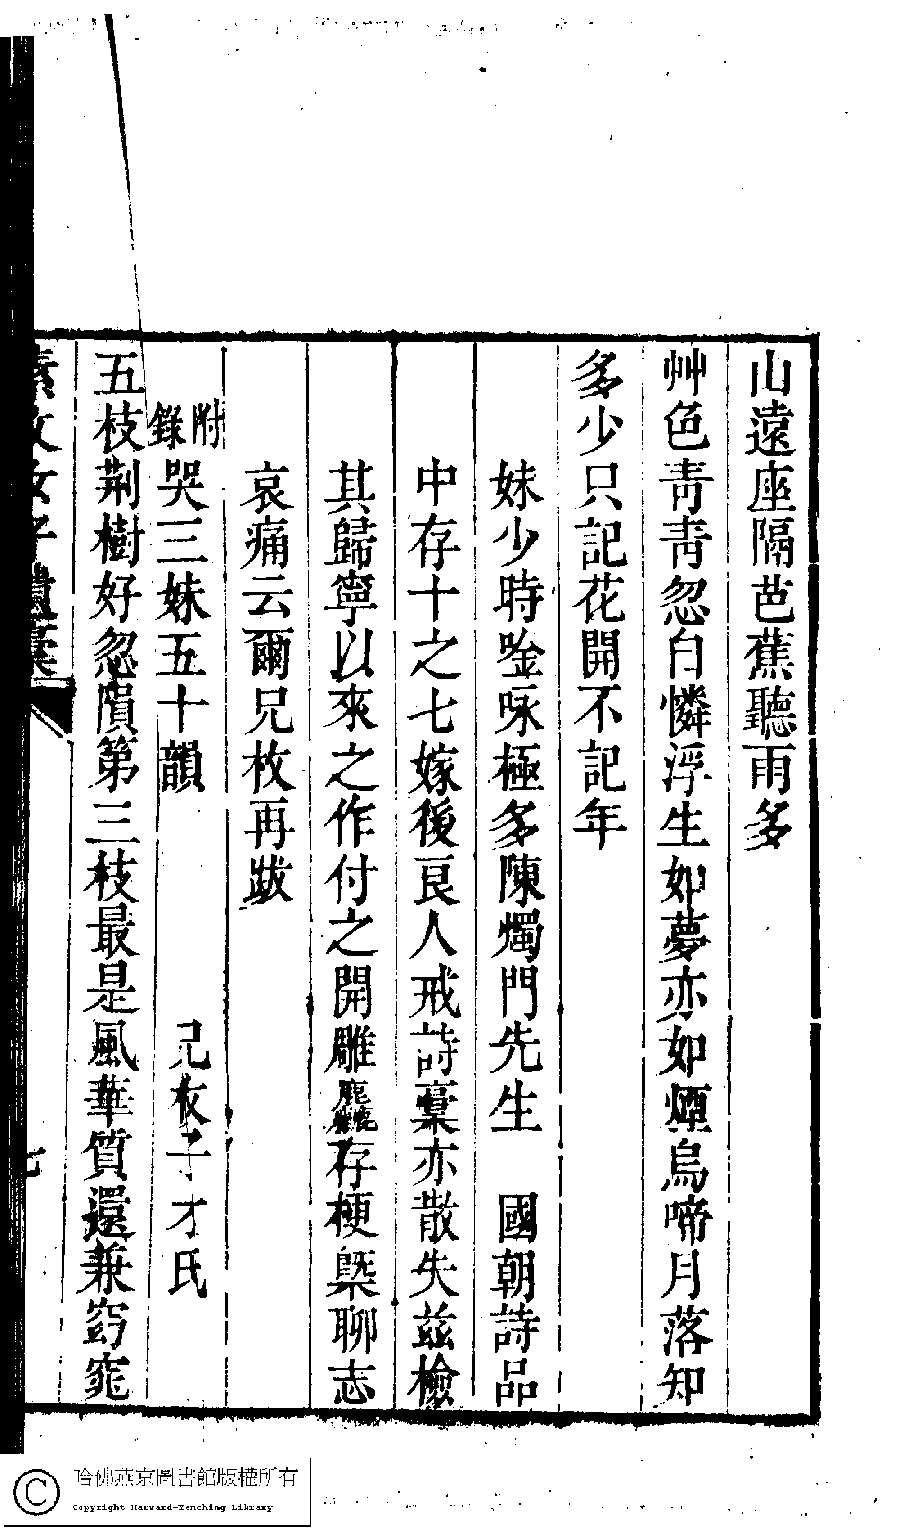 山遠座隔芭蕉聽雨多
艸色靑靑忽白憐浮生如夢亦如煙烏啼月落知
多少只記花開不記年
妹少時唫咏極多陳燭門先生 國朝詩品
中存十之七嫁後良人戒詩稾亦散失兹檢
其歸寧以來之作付之開雕庶幾存梗槩聊志
哀痛云爾兄枚再跋
附錄哭三妹五十韻 兄枚子才氏
五枝荆樹好忽隕第三枝最是風華質還兼窈窕
素文女子遺稾
七
哈佛燕京圖書館版權所有
Copyright Harvard-Yenching Library